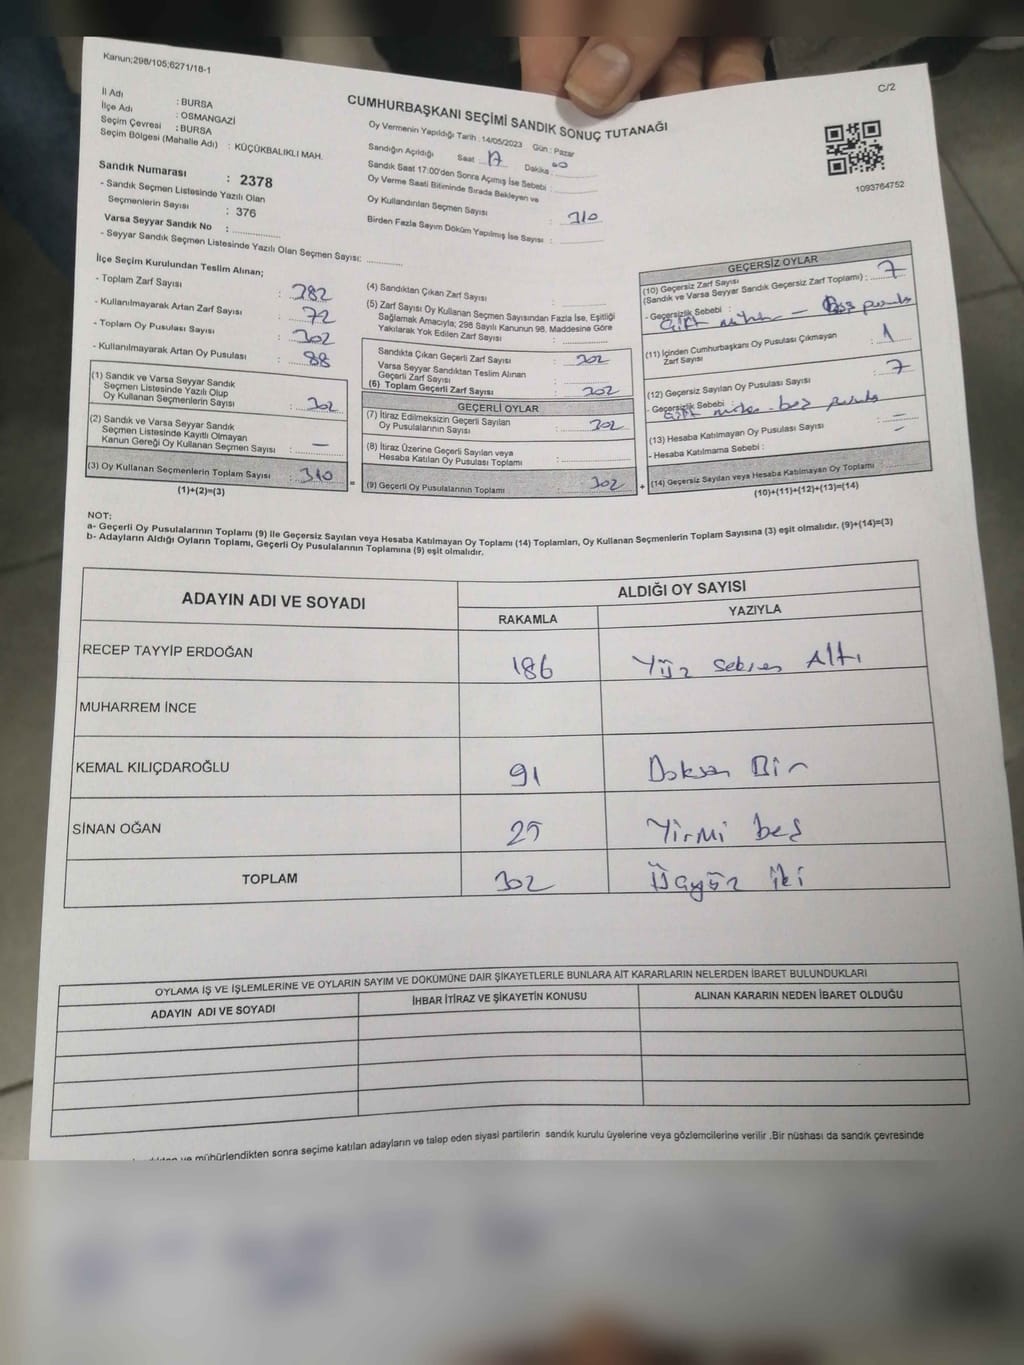 Kanun;298/105;6271/18-1
C/2
CUMHURBAŞKANI SEÇİMİ SANDIK SONUÇ TUTANAĞI
İl Adı : BURSA
İlçe Adı : OSMANGAZİ
Seçim Çevresi : BURSA
Seçim Bölgesi (Mahalle Adı) : KÜÇÜKBALIKLI MAH.
Sandık Numarası : 2378
- Sandık Seçmen Listesinde Yazılı Olan
Seçmenlerin Sayısı : 376
Varsa Seyyar Sandık No :
- Seyyar Sandık Seçmen Listesinde Yazılı Olan Seçmen Sayısı:
Oy Vermenin Yapıldığı Tarih : 14/05/2023 Gün : Pazar
Sandığın Açıldığı Saat : 17 Dakika : 00
Sandık Saat 17:00'den Sonra Açımış İse Sebebi :
Oy Verme Saati Bitiminde Sırada Bekleyen ve
Oy Kullandırılan Seçmen Sayısı : 310
Birden Fazla Sayım Döküm Yapılmış İse Sayısı :
1093764752
İlçe Seçim Kurulundan Teslim Alınan;
- Toplam Zarf Sayısı : 382
- Kullanılmayarak Artan Zarf Sayısı : 72
- Toplam Oy Pusulası Sayısı : 302
- Kullanılmayarak Artan Oy Pusulası : 88
(1) Sandık ve Varsa Seyyar Sandık
Seçmen Listesinde Yazılı Olup
Oy Kullanan Seçmenlerin Sayısı : 302
(2) Sandık ve Varsa Seyyar Sandık
Seçmen Listesinde Kayıtlı Olmayan
Kanun Gereği Oy Kullanan Seçmen Sayısı : —
(3) Oy Kullanan Seçmenlerin Toplam Sayısı : 310
(1)+(2)=(3)
(4) Sandıktan Çıkan Zarf Sayısı :
(5) Zarf Sayısı Oy Kullanan Seçmen Sayısından Fazla İse, Eşitliği
Sağlamak Amacıyla; 298 Sayılı Kanunun 98. Maddesine Göre
Yakılarak Yok Edilen Zarf Sayısı :
Sandıkta Çıkan Geçerli Zarf Sayısı : 302
Varsa Seyyar Sandıktan Teslim Alınan
Geçerli Zarf Sayısı :
(6) Toplam Geçerli Zarf Sayısı : 302
GEÇERLİ OYLAR
(7) İtiraz Edilmeksizin Geçerli Sayılan
Oy Pusulalarının Sayısı : 302
(8) İtiraz Üzerine Geçerli Sayılan veya
Hesaba Katılan Oy Pusulası Toplamı :
(9) Geçerli Oy Pusulalarının Toplamı : 302
= +
GEÇERSİZ OYLAR
(10) Geçersiz Zarf Sayısı
(Sandık ve Varsa Seyyar Sandık Geçersiz Zarf Toplamı) : 7
- Geçersizlik Sebebi :
Çift mühür — Boş pusula
(11) İçinden Cumhurbaşkanı Oy Pusulası Çıkmayan
Zarf Sayısı : 1
(12) Geçersiz Sayılan Oy Pusulası Sayısı : 7
- Geçersizlik Sebebi :
Çift mühür - boş pusula
(13) Hesaba Katılmayan Oy Pusulası Sayısı : —
- Hesaba Katılmama Sebebi : —
(14) Geçersiz Sayılan veya Hesaba Katılmayan Oy Toplamı :
(10)+(11)+(12)+(13)=(14)
NOT:
a- Geçerli Oy Pusulalarının Toplamı (9) ile Geçersiz Sayılan veya Hesaba Katılmayan Oy Toplamı (14) Toplamları, Oy Kullanan Seçmenlerin Toplam Sayısına (3) eşit olmalıdır. (9)+(14)=(3)
b- Adayların Aldığı Oyların Toplamı, Geçerli Oy Pusulalarının Toplamına (9) eşit olmalıdır.
ADAYIN ADI VE SOYADI ALDIĞI OY SAYISI
RAKAMLA YAZIYLA
RECEP TAYYİP ERDOĞAN 186 Yüz seksen Altı
MUHARREM İNCE
KEMAL KILIÇDAROĞLU 91 Doksan Bir
SİNAN OĞAN 25 Yirmi beş
TOPLAM 302 Üçyüz iki
OYLAMA İŞ VE İŞLEMLERİNE VE OYLARIN SAYIM VE DÖKÜMÜNE DAİR ŞİKAYETLERLE BUNLARA AİT KARARLARIN NELERDEN İBARET BULUNDUKLARI
ADAYIN ADI VE SOYADI İHBAR İTİRAZ VE ŞİKAYETİN KONUSU ALINAN KARARIN NEDEN İBARET OLDUĞU
ve mühürlendikten sonra seçime katılan adayların ve talep eden siyasi partilerin sandık kurulu üyelerine veya gözlemcilerine verilir .Bir nüshası da sandık çevresinde